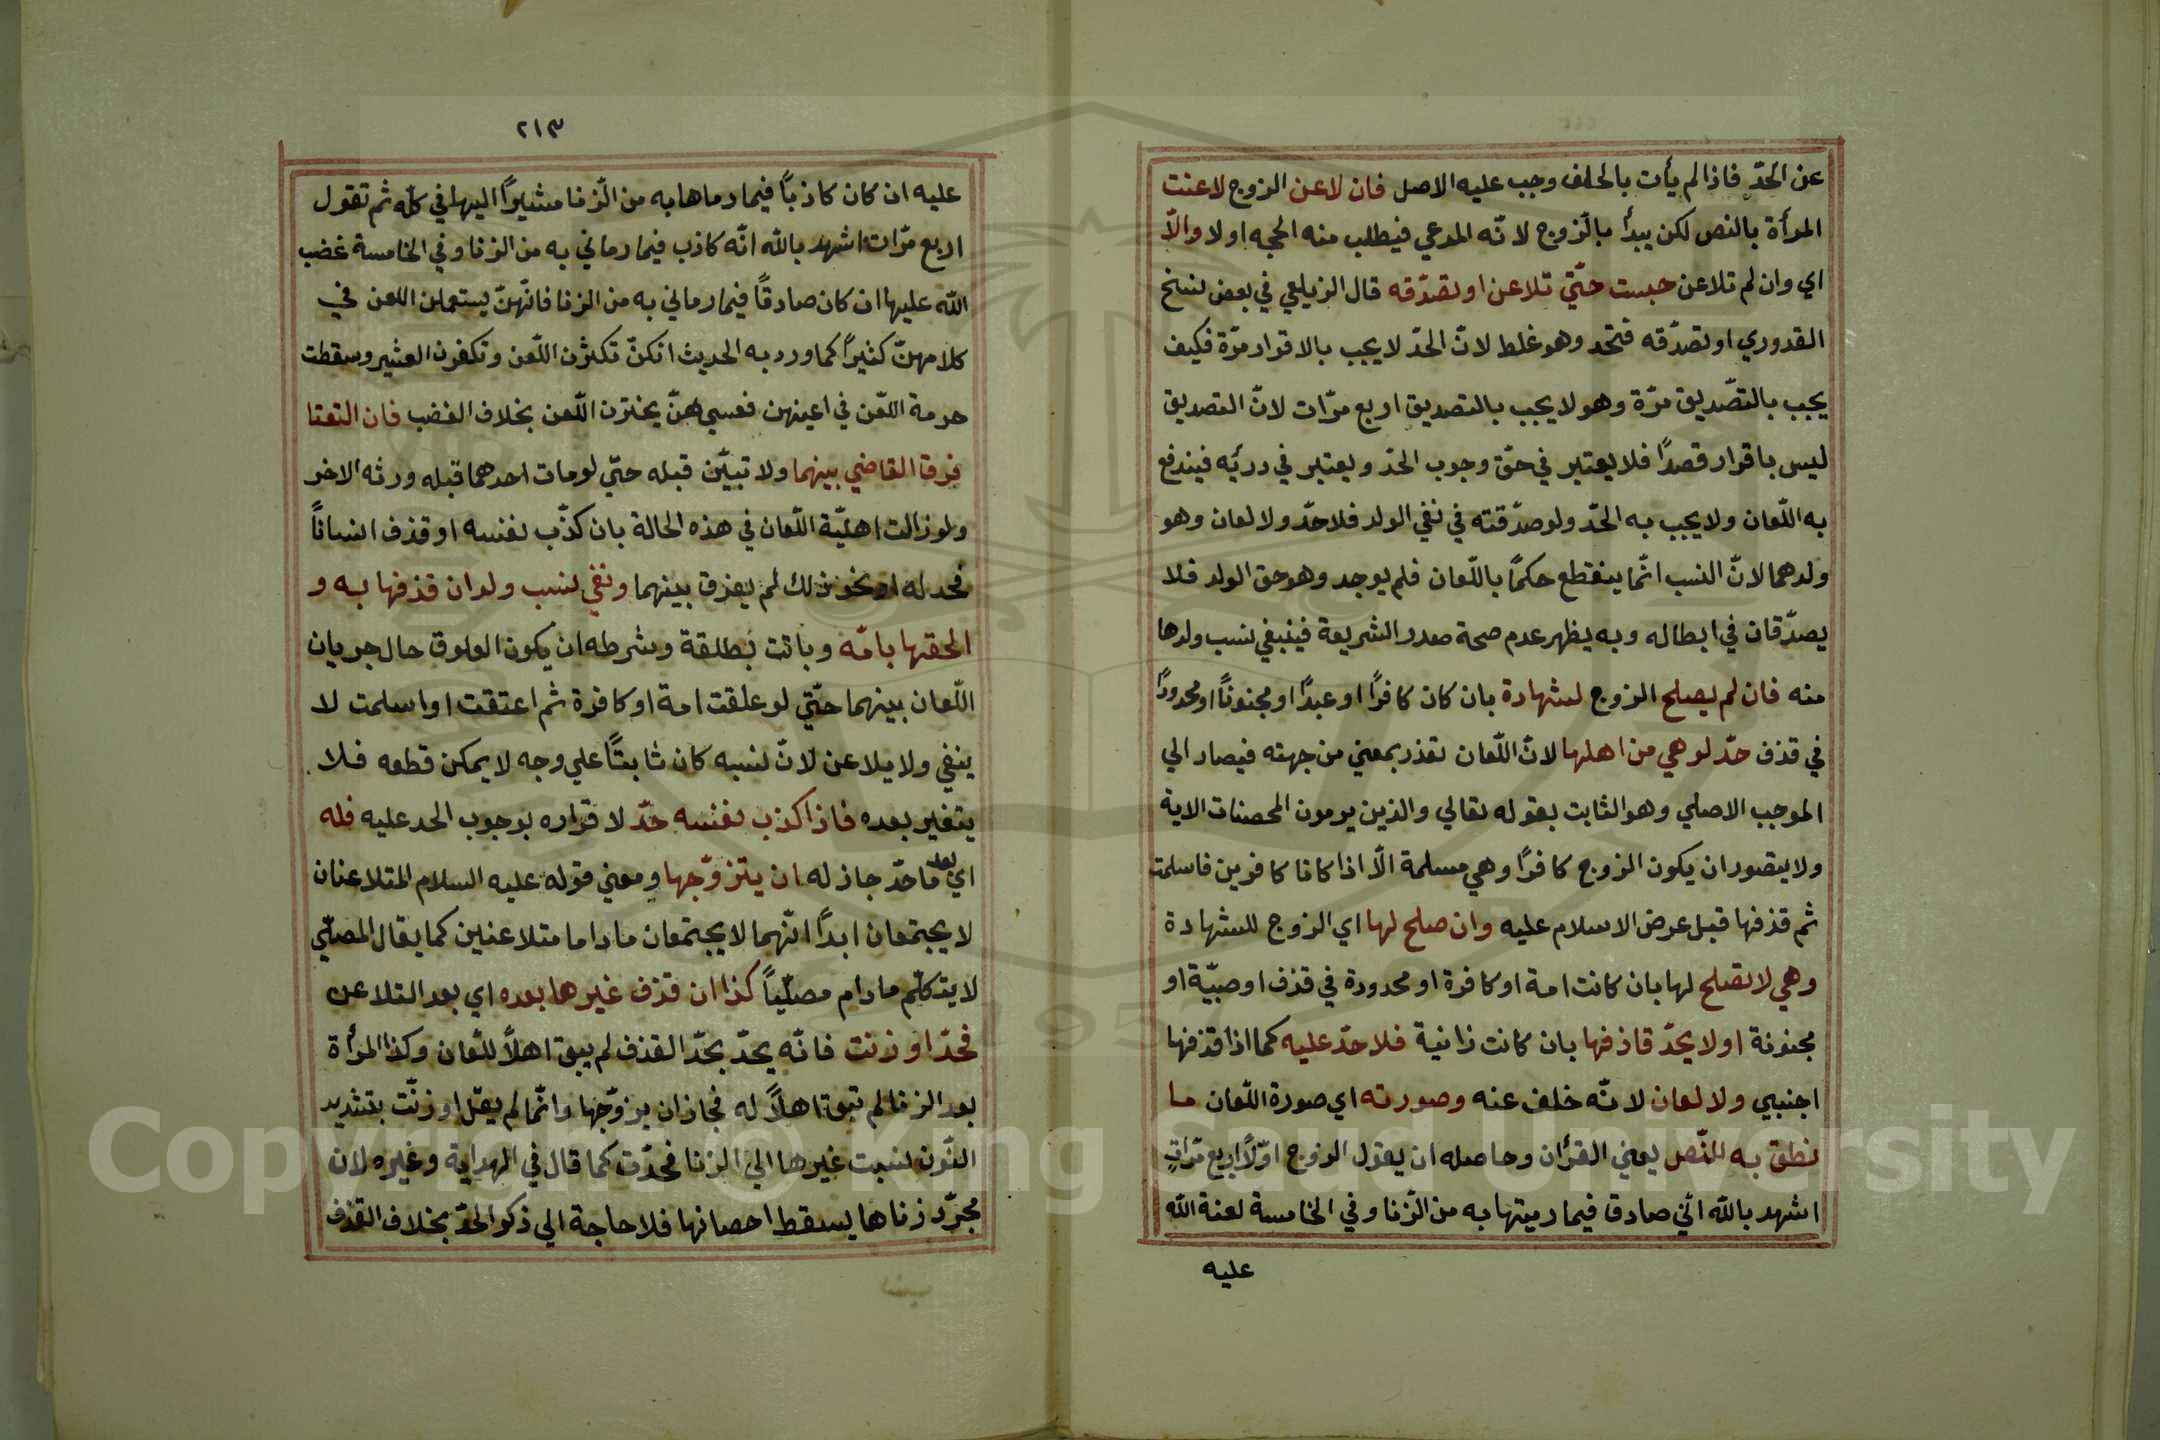 عن الحدّ فاذا لم يأت بالحلف وجب عليه الاصل فان لاعن الزوج لاعنت
المرأة بالنص لكن يبدأ بالزوج لانّه المدعي فيطلب منه الحجه اولا والّا
اي وان لم تلاعن حبست حتّي تلاعن او تصدّقه قال الزيلعي في بعض نسخ
القدوري او تصدّقه فتحد وهو غلط لانّ الحدّ لا يجب بالاقرار مرّة فكيف
يجب بالتصّديق مرّة وهو لا يجب بالتصديق اربع مرّات لانّ التصديق
ليس باقرار قصدًا فلا يعتبر في حقّ وجوب الحدّ ويعتبر في درئه فيندفع
به اللّعان ولا يجب به الحدّ ولو صدّقته في نفي الولد فلا حدّ ولا لعان وهو
ولدهما لانّ النسب انّما ينقطع حكمًا باللّعان فلم يوجد وهو حق الولد فلا
يصدّقان في ابطاله وبه يظهر عدم صحة صدر الشريعة فينبغي نسب ولدها
منه فان لم يصلح الزوج لشهادة بان كان كافرًا او عبدًا او مجنونًا او محدودًا
في قذف حدّ لو هي من اهلها لانّ اللّعان تعذر بمعني من جهته فيصار الي
الموجب الاصلي وهو الثابت بقوله تعالي والذين يرمون المحصنات الاية
ولا يتصور ان يكون الزوج كافرًا وهي مسلمة الّا اذا كانا كافرين فاسلمت
ثم قذفها قبل عرض الاسلام عليه وان صلح لها اي الزوج للشهادة
وهي لا تصلح لها بان كانت امة او كافرة او محدودة في قذف او صبيّة او
مجنونة او لا يحدّ قاذفها بان كانت زانية فلا حدّ عليه كما اذا قذفها
اجنبي ولا لعان لانّه خلف عنه وصورته اي صورة اللّعان ما
نطق به النّص يعني القرأن وحاصله ان يقول الزوج اوّلًا اربع مرّات
اشهد باللّه انّي صادق فيما رميتها به من الزّنا وفي الخامسة لعنة اللّه
عليه
٢١٣
عليه ان كان كاذبًا فيما رماها به من الزّنا مشيرًا اليها في كلّه ثم تقول
اربع مرّات اشهد باللّه انّه كاذب فيما رماني به من الزنا وفي الخامسة غضب
اللّه عليها ان كان صادقًا فيما رماني به من الزنا فانّهنّ يستعملن اللعن في
كلامهنّ كثيرًا كما ورد به الحديث انكنّ تكثرن اللّعن وتكفرن العشير وسقطت
حرمة اللّعن في اعينهن فعسي هنّ يخترن اللّعن بخلاف الغضب فان التعتا
فرق القاضي بينهما ولا تبيّن قبله حتّي لو مات احدهما قبله ورثه الاخر
ولو زالت اهليّة اللّعان في هذه الحالة بان كذّب نفسه او قذف انسانًا
فحد له او نحو ذلك لم يفرق بينهما ونفي نسب ولد ان قذفها به و
الحقها بامّه وبانت بطلقة وشرطه ان يكون العلوق حال جريان
اللّعان بينهما حتّي لو علقت امة او كافرة ثم اعتقت او اسلمت لا
ينفي ولا يلاعن لانّ نسبه كان ثابتًا علي وجه لا يمكن قطعه فلا
يتغير بعده فاذا كذب نفسه حدّ لاقراره بوجوب الحد عليه فله
اي بعد ما حدّ جاز له ان يتزوّجها ومعني قوله عليه السلام المتلاعنان
لا يجتمعان ابدًا انّهما لا يجتمعان ما داما متلاعنين كما يقال المصلّي
لا يتكلّم ما دام مصلّيًا كذا ان قذف غيرها بعده اي بعد التلاعن
فحدّ او زنت فانّه يحدّ بحدّ القذف لم يبق اهلًا للّعان وكذا المرأة
بعد الزنا لم تبق اهلًا له فجاز ان يزوّجها وانّما لم يقل او زنّت بتشديد
النّون نسبت غيرها الي الزنا فحدّت كما قال في الهداية وغيره لان
مجرّد زناها يسقط احصانها فلا حاجة الي ذكر الحدّ بخلاف القذف
Copyright © King Saud University
1957